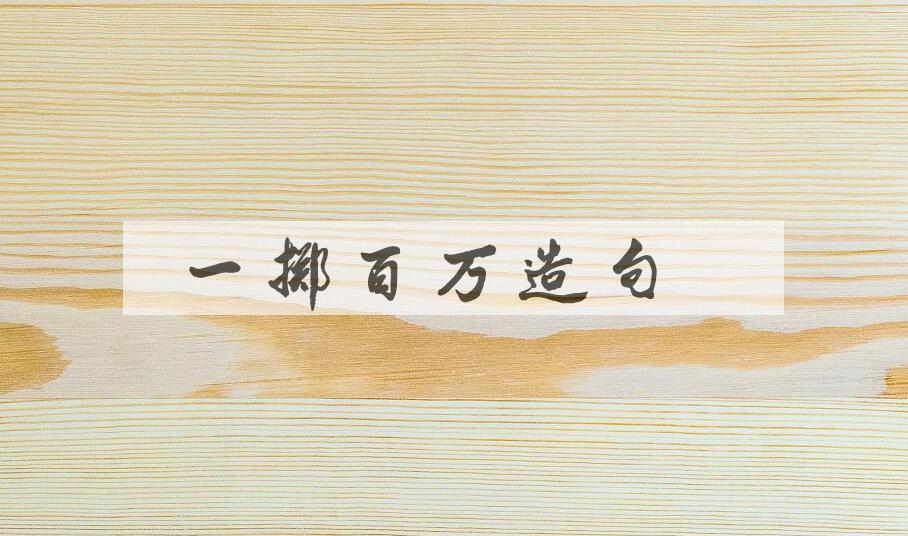 一掷百万造句